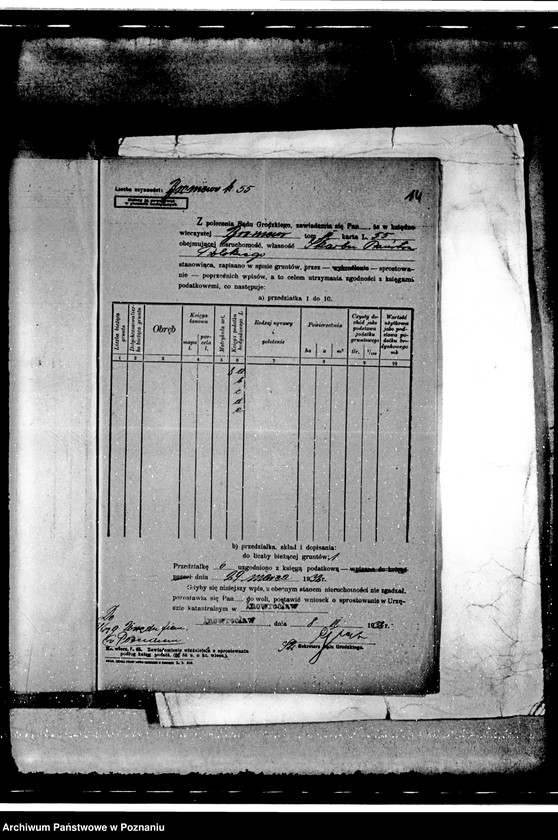 Liczba czynności: k. 55
14
Z polecenia Sądu Grodzkiego, zawiadamia się Pan że w księdze
wieczystej tom karta L. 55
obejmującej nieruchomość, własność Skarbu Państwa
Polskiego
stanowiąca, zapisano w spisie gruntów, przez — wykreślenie — sprostowa-
nie — poprzednich wpisów, a to celem utrzymania zgodności z księgami
podatkowemi, co następuje:
a) przedziałka 1 do 10.
Liczba bieżąca gruntu
Obręb
Księga łanowa
mapa l.
parcela l.
Matrykuła art.
Księgi podatku budynkowego L.
Rodzaj uprawy i położenie
Powierzchnia
ha
a
m²
Czysty dochód jako podstawa podatku gruntowego
tlr.
1/100
Wartość użytkowa jako podstawa podatku budynkowego
mk
1 2 3 4 5 6 7 8 9 10
8 a
b
c
d
e
b) przedziałka, skład i dopisania:
do liczby bieżącej gruntów: 1
Przedziałkę 6 uzgodniono z księgą podatkową — wpisano do księgi
dnia 29 marca 193 r.
Gdyby się niniejszy wpis, z obecnym stanem nieruchomości nie zgadzał,
pozostawia się Pan do woli, postawić wniosek o sprostowanie w Urzę-
dzie katastralnym w Inowrocław
Inowrocław dnia 8 193 r.
Do
w Poznaniu
St. Sekretarz Sądu Grodzkiego.
Ks. wiecz. f. 65. Zawiadomienie właściciela z sprostowania
podług ksiąg podatk.
Archiwum Państwowe w Poznaniu